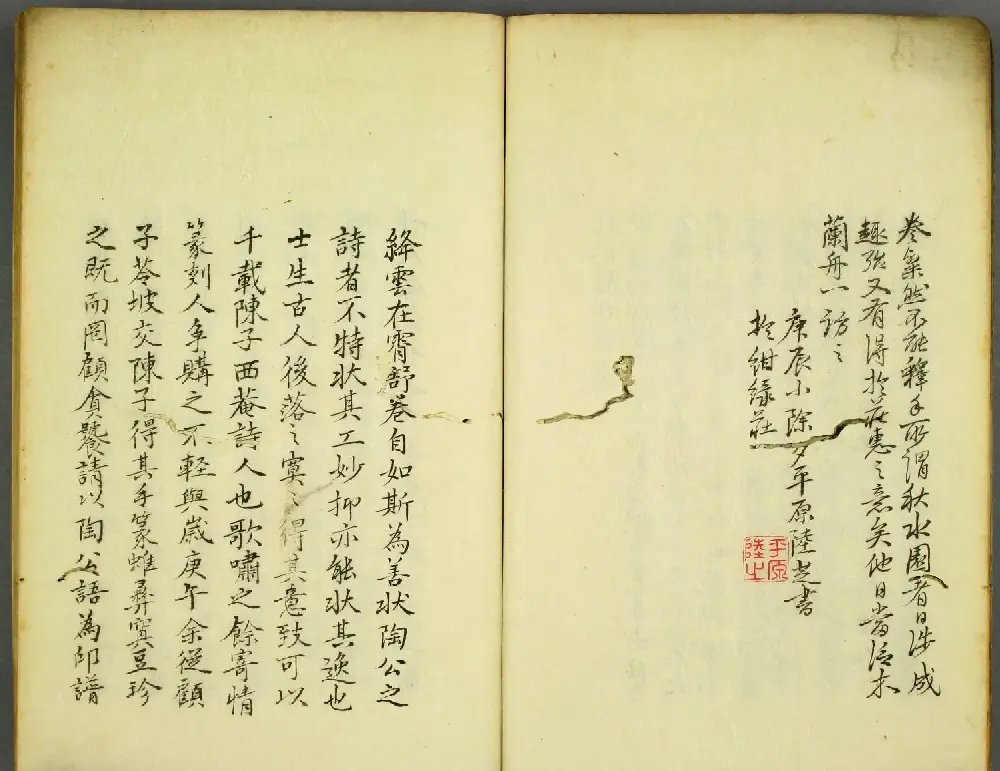 卷氣然不能釋手所謂秋水園者日涉成
趣殆又有得於莊惠之意矣他日當泛木
蘭舟一訪之
庚辰小除夕平原陸芝書
於紺綠莊
平原
陸芝
絳雲在霄舒卷自如斯為善状陶公之
詩者不特状其工妙抑亦能状其逸也
士生古人後落之寞之得其意致可以
千載陳子西菴詩人也歌嘯之餘寄情
篆刻人争購之不輕與歲庚午余從顧
子苓坡交陳子得其手篆雖彝寘豆珍
之既而罔顧貪饕請以陶公語為印譜